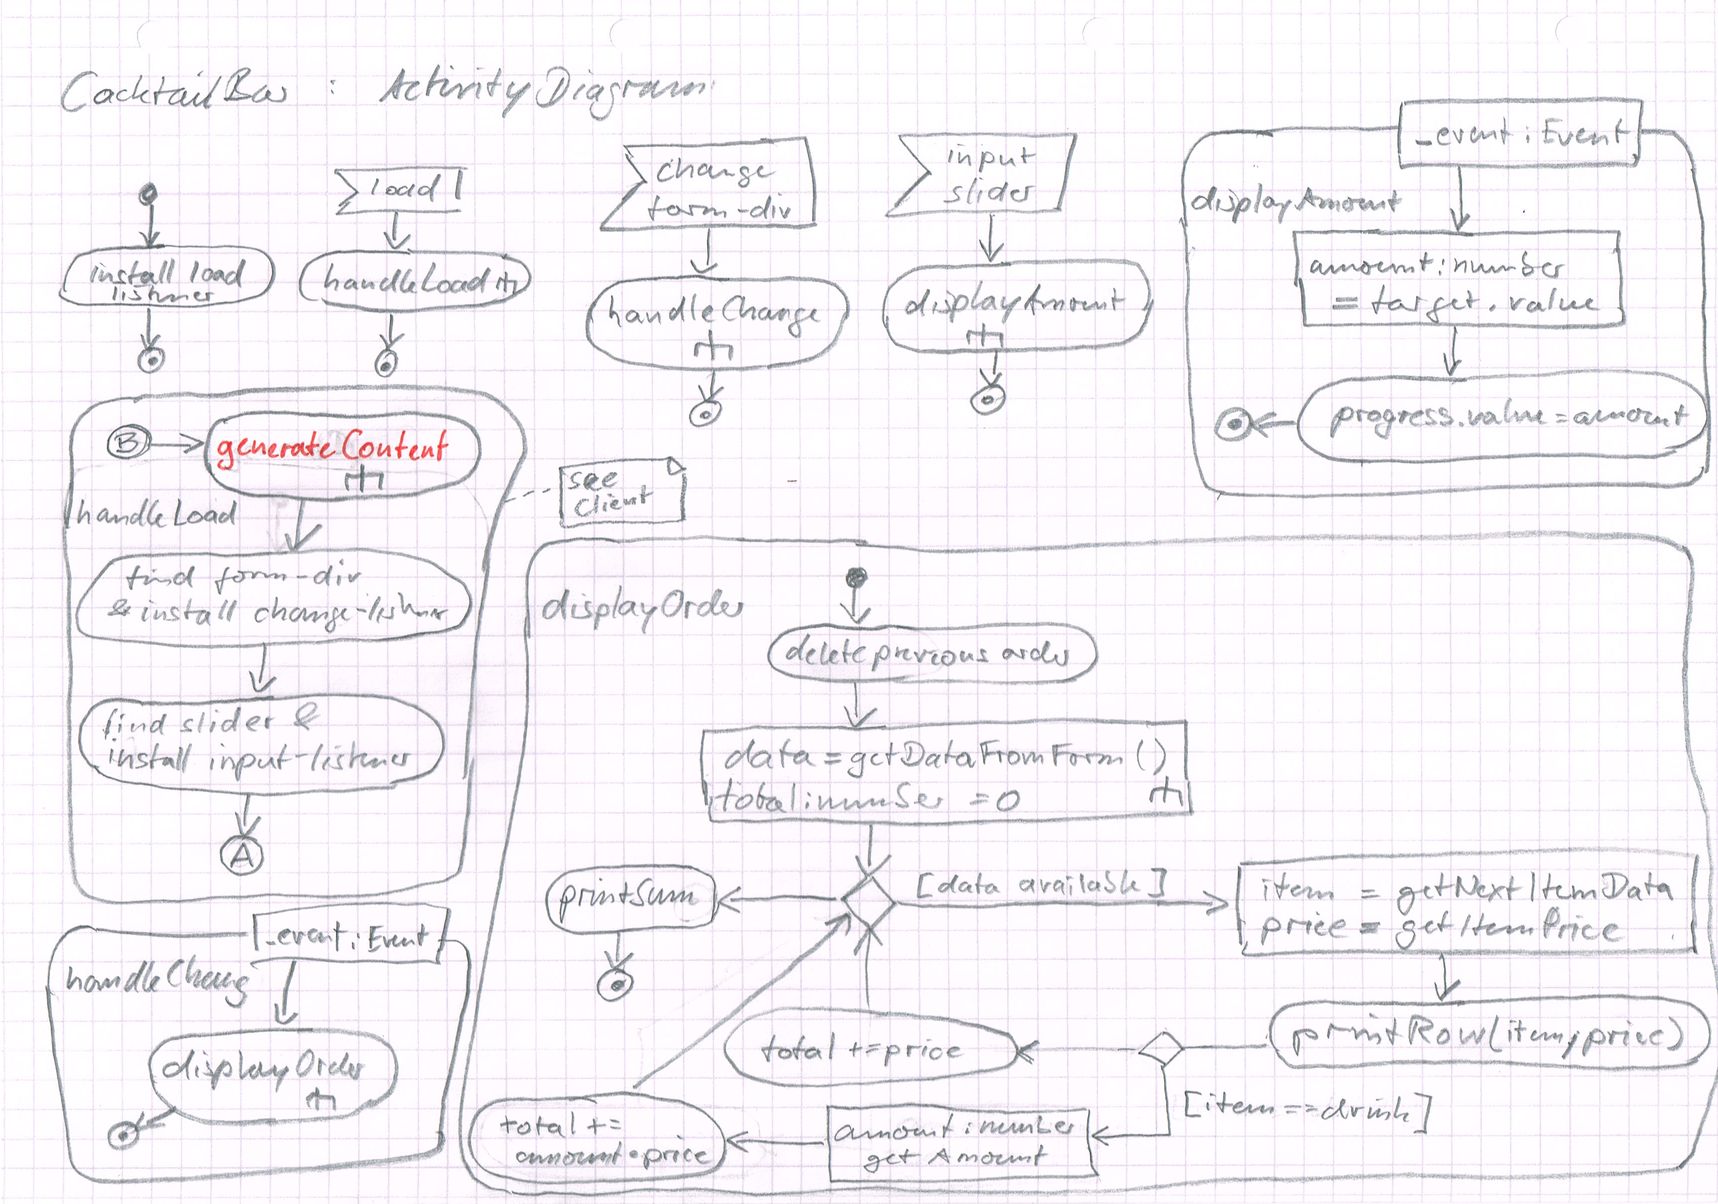 CocktailBar : ActivityDiagram
load
change
form-div
input
slider
_event : Event
displayAmount
install load
listner
handleLoad
handleChange
displayAmount
amount : number
= target.value
progress.value = amount
B
generateContent
handleLoad
see
Client
find form-div
& install change-listner
find slider &
install input-listener
A
displayOrder
delete previous order
data = getDataFromForm ()
total : number = 0
printSum
[data available]
item = getNextItemData
price = getItemPrice
_event : Event
handleChang
displayOrder
total += price
printRow(item, price)
[item == drink]
total +=
amount * price
amount : number
getAmount